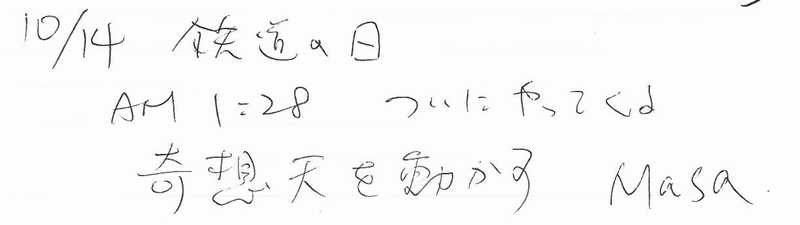 10/14 鉄道の日
AM 1:28 ついにやってくる
奇想天を動かす Masa.